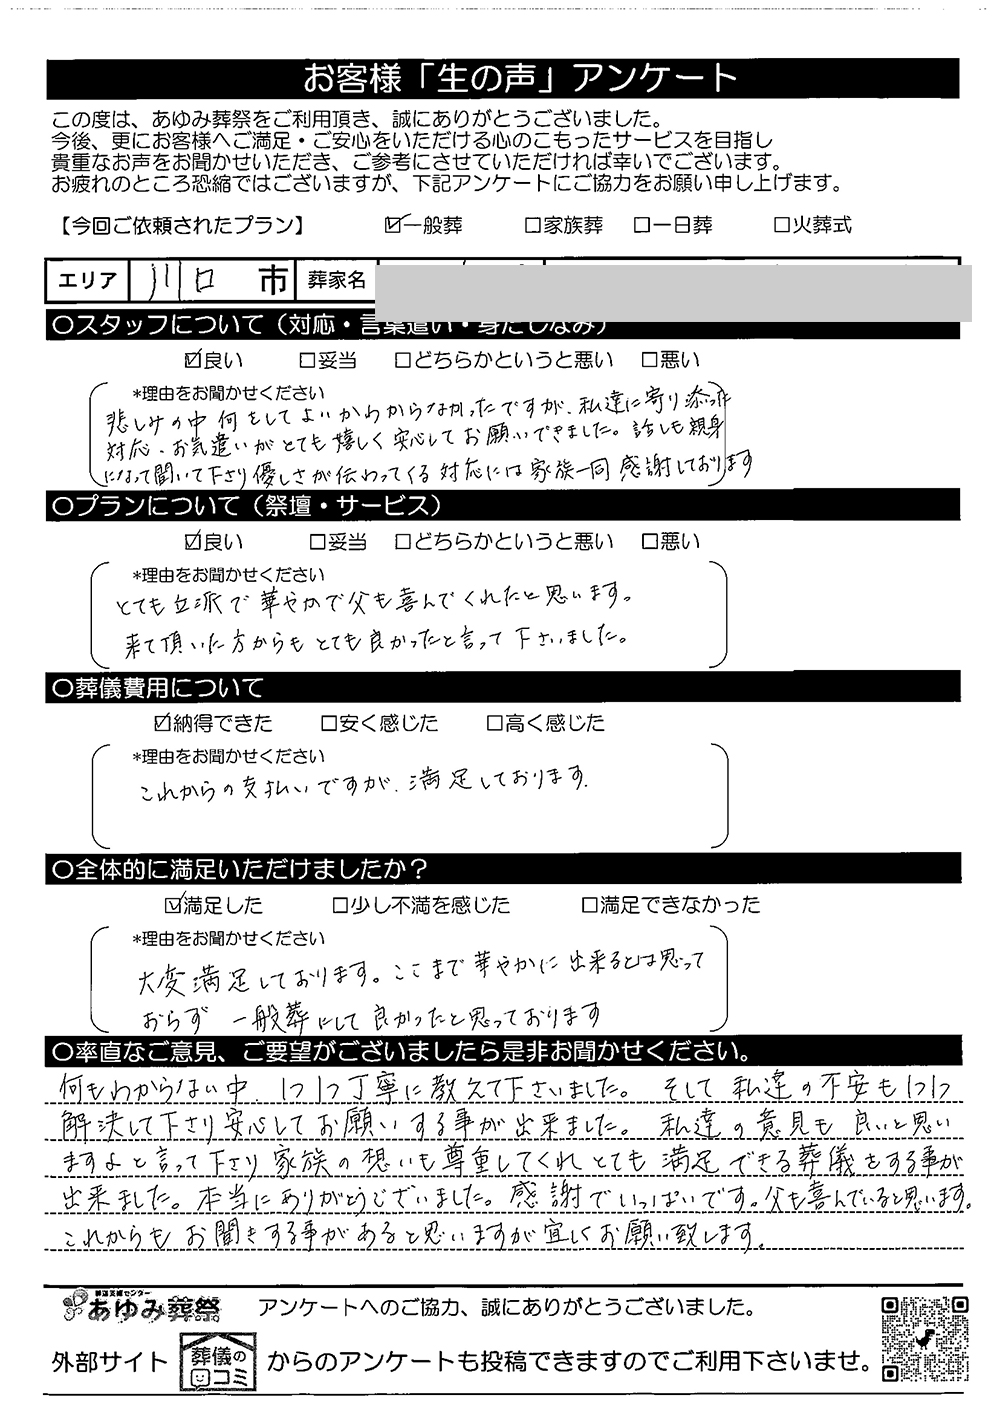 お客様「生の声」アンケート
この度は、あゆみ葬祭をご利用頂き、誠にありがとうございました。
今後、更にお客様へご満足・ご安心をいただける心のこもったサービスを目指し
貴重なお声をお聞かせいただき、ご参考にさせていただければ幸いでございます。
お疲れのところ恐縮ではございますが、下記アンケートにご協力をお願い申し上げます。
【今回ご依頼されたプラン】 ☑一般葬 □家族葬 □一日葬 □火葬式
エリア 川口 市 葬家名
○スタッフについて（対応・言葉遣い・身だしなみ）
☑良い □妥当 □どちらかというと悪い □悪い
*理由をお聞かせください
悲しみの中何をしてよいかわからなかったですが、私達に寄り添った
対応、お気遣いがとても嬉しく安心してお願いできました。話しも親身
になって聞いて下さり優しさが伝わってくる対応には家族一同感謝しております
○プランについて（祭壇・サービス）
☑良い □妥当 □どちらかというと悪い □悪い
*理由をお聞かせください
とても立派で華やかで父も喜んでくれたと思います。
来て頂いた方からもとても良かったと言って下さいました。
○葬儀費用について
☑納得できた □安く感じた □高く感じた
*理由をお聞かせください
これからの支払いですが、満足しております。
○全体的に満足いただけましたか？
☑満足した □少し不満を感じた □満足できなかった
*理由をお聞かせください
大変満足しております。ここまで華やかに出来るとは思って
おらず 一般葬にして良かったと思っております
○率直なご意見、ご要望がございましたら是非お聞かせください。
何もわからない中、1つ1つ丁寧に教えて下さいました。そして私達の不安も1つ1つ
解決して下さり安心してお願いする事が出来ました。私達の意見も良いと思い
ますよと言って下さり家族の想いも尊重してくれとても満足できる葬儀をする事が
出来ました。本当にありがとうございました。感謝でいっぱいです。父も喜んでいると思います。
これからもお聞きする事があると思いますが宜しくお願い致します。
葬儀支援センター
あゆみ葬祭 アンケートへのご協力、誠にありがとうございました。
外部サイト 葬儀の口コミ からのアンケートも投稿できますのでご利用下さいませ。